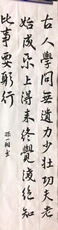 古人學问無遺力少壮功夫老
始成紙上得来終覺淺絕知
此事要躬行